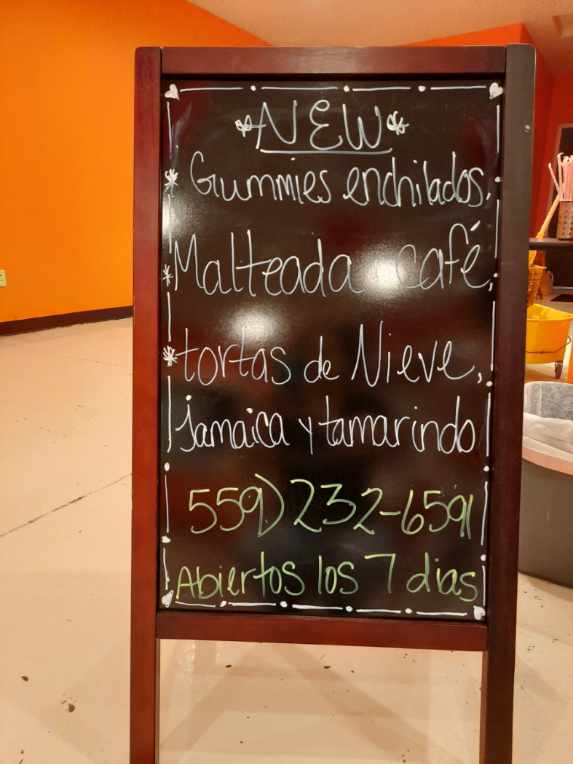 NEW
Gummies enchilados,
Malteada café,
tortas de Nieve,
Jamaica y tamarindo
559) 232-6591
Abiertos los 7 dias